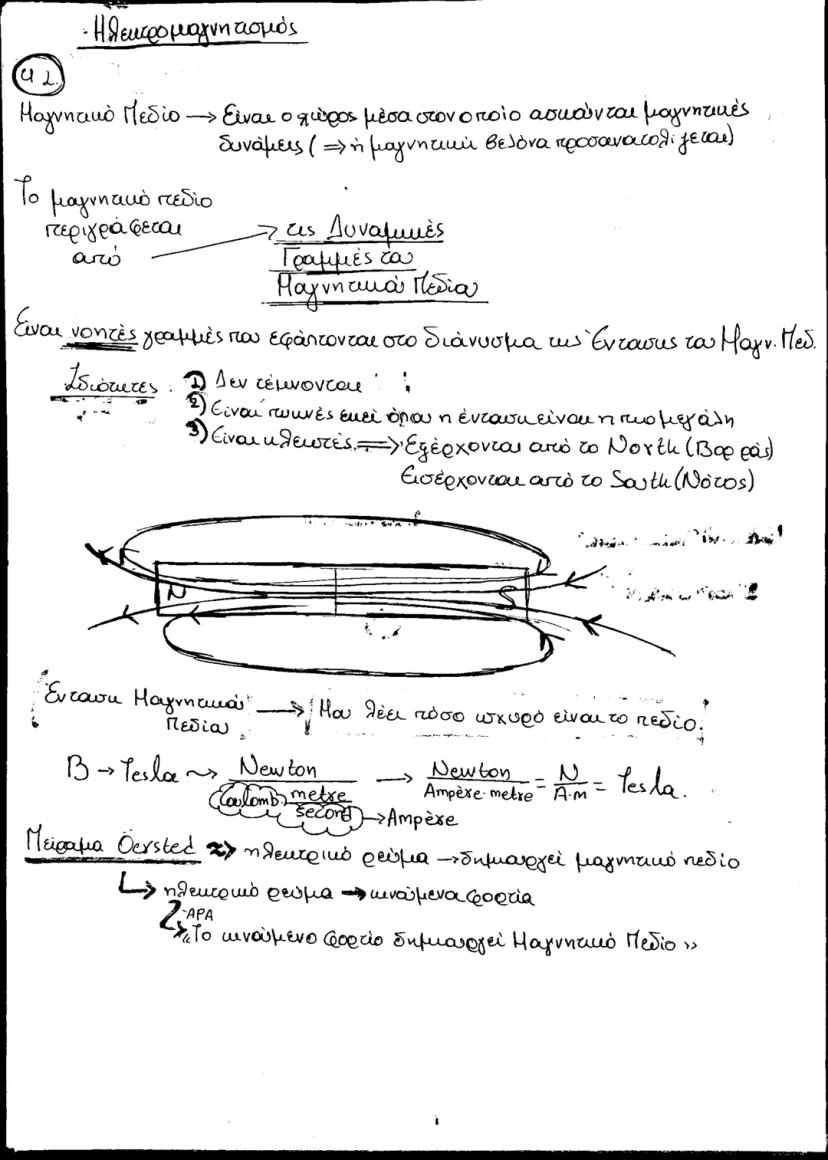 Ηλεκτρομαγνητισμός
Μαγνητικό Πεδίο → Είναι ο χώρος μέσα στον οποίο ασκούνται μαγνητικές
δυνάμεις (⇒ η μαγνητική βελόνα προσανατολίζεται)
Το μαγνητικό πεδίο
περιγράφεται
από → τις Δυναμικές
Γραμμές του
Μαγνητικού Πεδίου
Είναι νοητές γραμμές που εφάπτονται στο διάνυσμα της Έντασης του Μαγν. Πεδ.
Ιδιότητες : ① Δεν τέμνονται
② Είναι πυκνές εκεί όπου η ένταση είναι η πιο μεγάλη
③ Είναι κλειστές ⇒ Εξέρχονται από το North (Βορράς)
Εισέρχονται από το South (Νότος)
N S
Ένταση Μαγνητικού
Πεδίου → Μου λέει πόσο ισχυρό είναι το πεδίο.
B → Tesla ⤳ Newton / Coulomb · metre / second → Newton / Ampère · metre = N / A·m = Tesla.
→ Ampère
Πείραμα Oersted ⇝ ηλεκτρικό ρεύμα → δημιουργεί μαγνητικό πεδίο
↳ ηλεκτρικό ρεύμα → κινούμενα φορτία
ΑΡΑ
«Το κινούμενο φορτίο δημιουργεί Μαγνητικό Πεδίο»